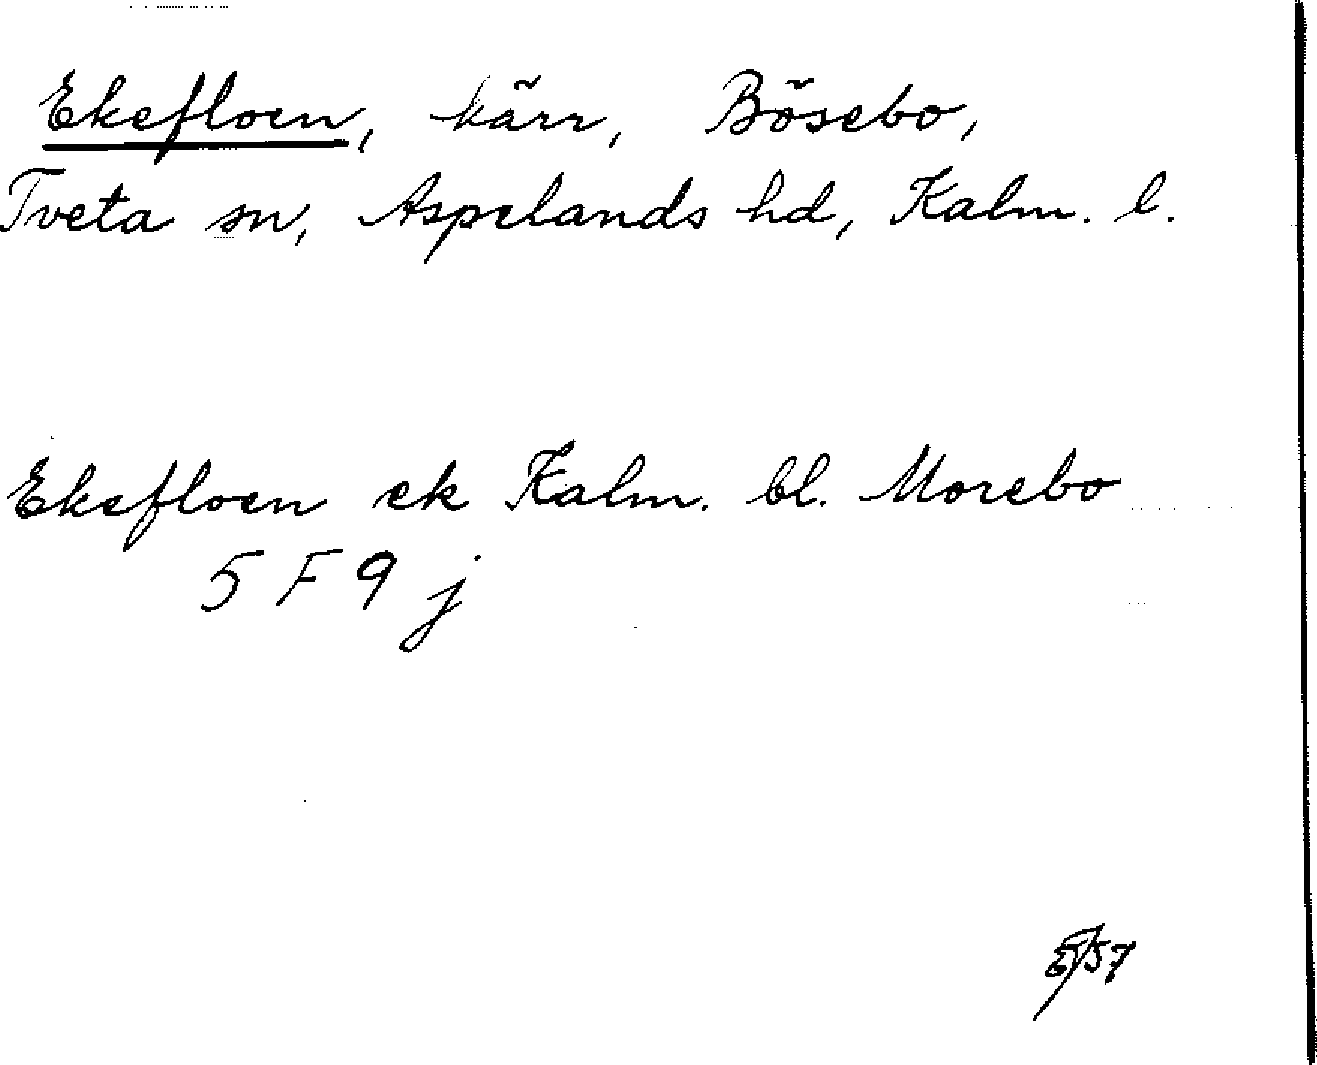 Ekefloen, kärr, Bösebo,
Tveta sn, Aspelands hd, Kalm. l.
Ekefloen ek Kalm. bl. Morebo
5 F 9 j